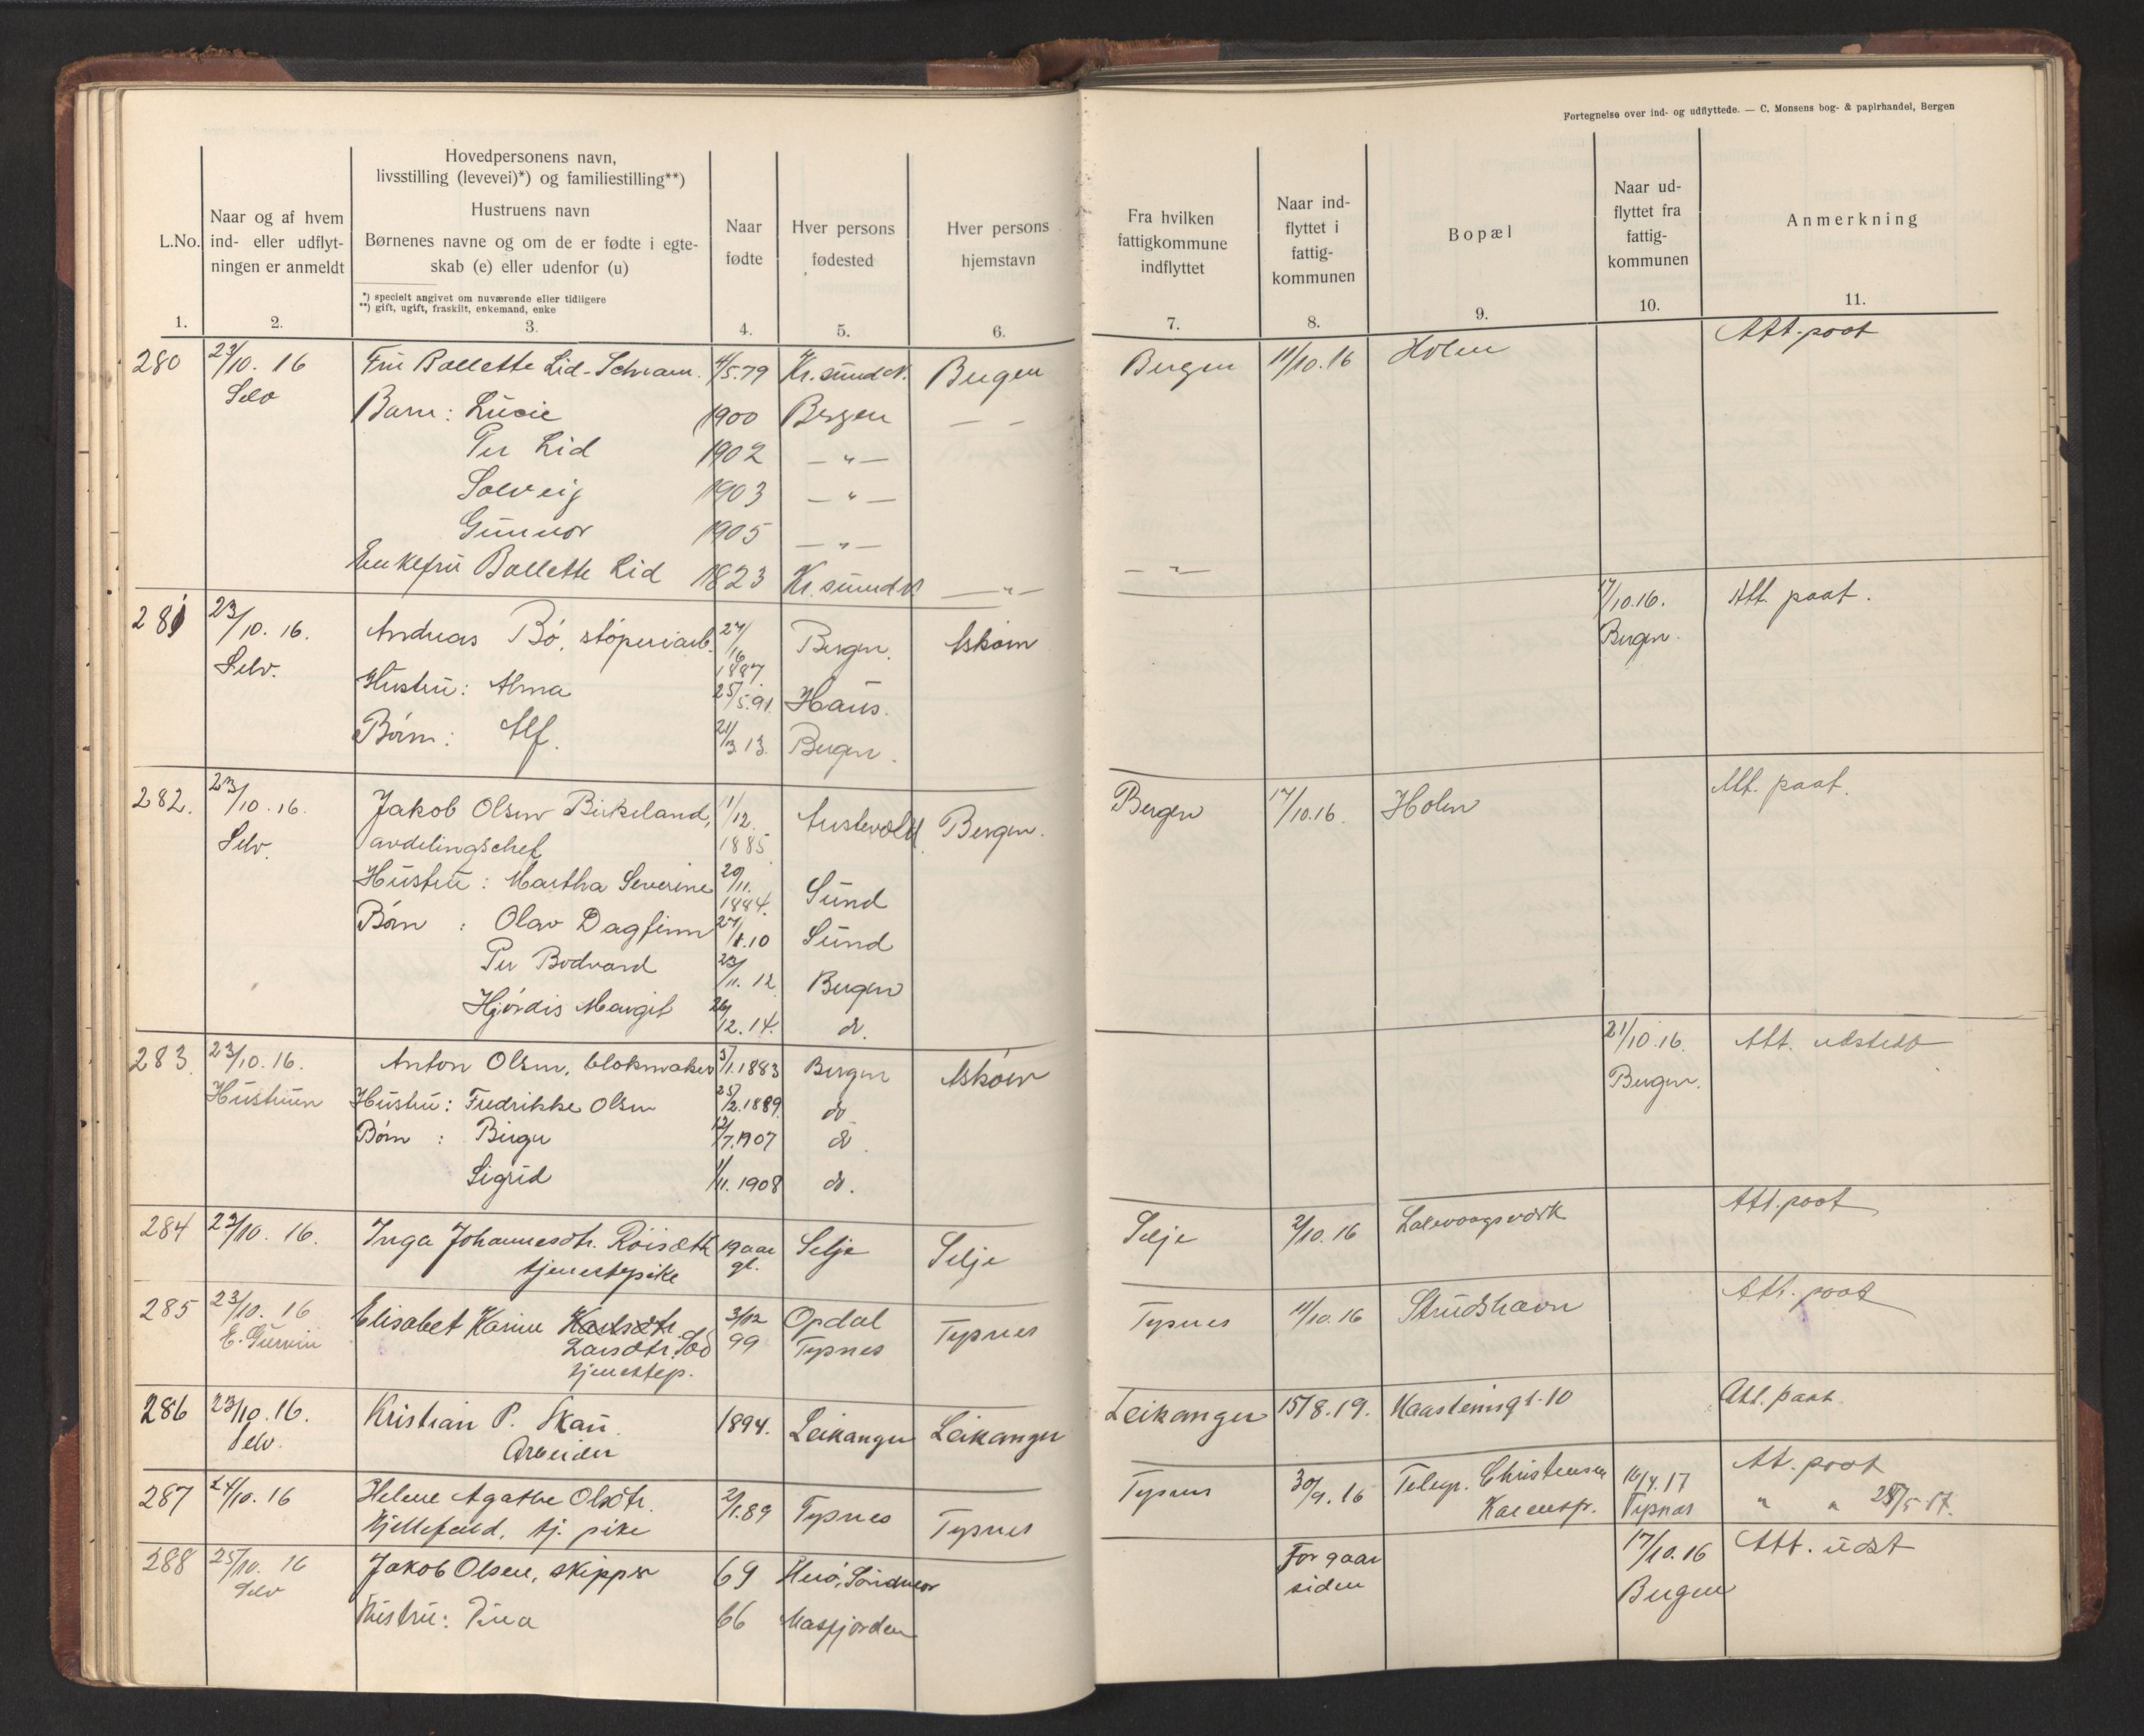 Fortegnelse over ind- og udflyttede. — C. Monsens bog- & papirhandel, Bergen
L.No.
1.
Naar og af hvem
ind- eller udflyt-
ningen er anmeldt
2.
Hovedpersonens navn,
livsstilling (levevei)*) og familiestilling**)
Hustruens navn
Børnenes navne og om de er fødte i egte-
skab (e) eller udenfor (u)
*) specielt angivet om nuværende eller tidligere
**) gift, ugift, fraskilt, enkemand, enke
3.
Naar
fødte
4.
Hver persons
fødested
5.
Hver persons
hjemstavn
6.
Fra hvilken
fattigkommune
indflyttet
7.
Naar ind-
flyttet i
fattig-
kommunen
8.
Bopæl
9.
Naar ud-
flyttet fra
fattig-
kommunen
10.
Anmerkning
11.
280 23/10. 16 Fru Bollette Lid-Schram. 4/5.79 Kr.sund N. Bergen Bergen 11/10.16 Holen Att. paat
Selv
Barn: Lucie 1900 Bergen — –
Per Lid 1902 — " —
Solveig 1903 — " —
Gunnor 1905 — " —
Enkefru Bollette Lid 1823 Kr.sund N. — " — — " —
281 23/10. 16. Andreas Bø, støperiarb. 1887. Bergen. Askøen 17/10.16. Att. paat.
Selv. Bergen.
Hustru: Alma 25/5.91. Haus.
Børn: Alf. 21/3.13. Bergen.
282. 23/10.16. Jakob Olsen Birkeland, 11/12. 1885 Austevold Bergen. Bergen 17/10.16. Holen Att. paat.
Selv. avdelingschef
Hustru: Martha Severine 20/11. 1884. Sund
Børn : Olav Dagfinn 27/8.10 Sund
Per Bodvard 23/11. 12 Bergen
Hjørdis Margit 26/12. 14. do.
283. 23/10.16. Anton Olsen, blokmaker 5/1.1883 Bergen Askøen 21/10.16. Att. udstedt
Hustruen Bergen.
Hustru: Fredrikke Olsen 25/2.1889. do
Børn : Birger 12/7.1907 do.
Sigrid 1/11. 1908 do.
284 23/10. 16. Inga Johannesdtr. Røisæth 19 aar gl. Selje Selje Selje 2/10.16 Laksevaagsverk Att. paat
tjenestepike
285 23/10. 16 Elisabet Karine Karlsdtr. 3/12 Opdal Tysnes Tysnes 11/10.16 Strudshavn Att. paat
E. Gurvin Larsdtr. 99 Tysnes
tjenestep.
286 23/10.16. Kristian P. Skau. 1894. Leikanger Leikanger Leikanger 15/8.19. Kaasteinsgt. 10 Att. paat.
Selv. Arbeider
287 24/10. 16 Helene Agathe Olsdtr. 2/1.89 Tysnes Tysnes Tysnes 30/9.16 Telegr. Christensen 16/4.17 Att. paat
tj. pike Tysnes " " 25/5-17.
288 25/10. 16 Jakob Olsen, skipper 69 Herø, Søndmør For 9 aar 17/10.16 Att. udst
Selv siden Bergen
Hustru: Dina 66 Masfjorden